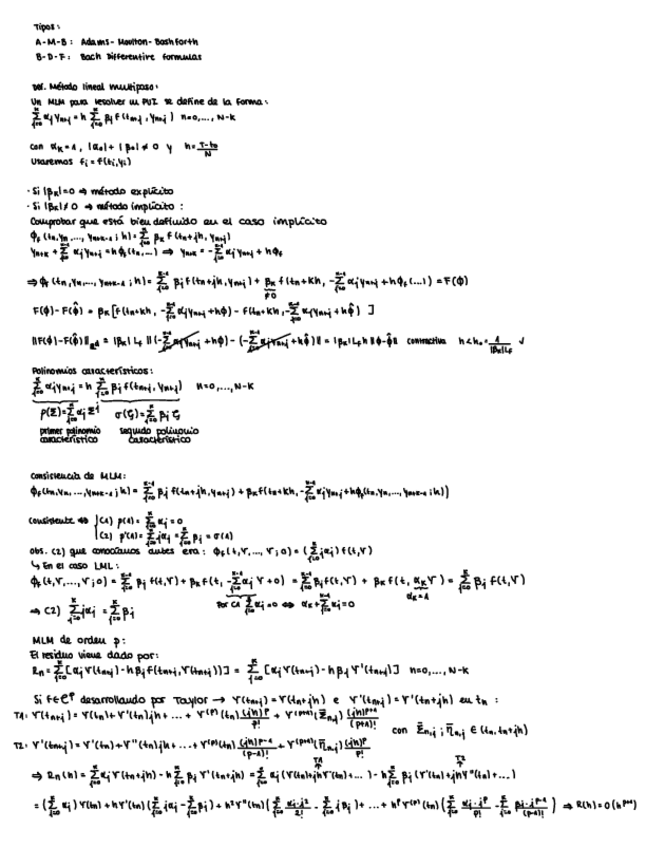 Tipos:
A-M-B: Adams-Moulton-Bashforth
B-D-F: Bach Differentive formulas
Def. Método lineal multipaso:
Un MLM para resolver un PVI se define de la forma:
∑_{j=0}^{K} α_j y_{n+j} = h ∑_{j=0}^{K} β_j f(t_{n+j}, y_{n+j}) n=0,..., N-K
con α_K=1, |α_0|+|β_0| ≠ 0 y h = (T-t_0)/N
Usaremos f_i = f(t_i, y_i)
· Si |β_K|=0 ⇒ método explícito
· Si |β_K| ≠ 0 ⇒ método implícito:
Comprobar que está bien definido en el caso implícito
ϕ_f(t_n, y_n, ..., y_{n+K-1}; h) = ∑_{j=0}^{K} β_K f(t_n+jh, y_{n+j})
y_{n+K} + ∑_{j=0}^{K-1} α_j y_{n+j} = h ϕ_f(t_n, ...) ⇒ y_{n+K} = -∑_{j=0}^{K-1} α_j y_{n+j} + h ϕ_f
⇒ ϕ_f(t_n, y_n, ..., y_{n+K-1}; h) = ∑_{j=0}^{K-1} β_j f(t_n+jh, y_{n+j}) + β_K f(t_n+Kh, -∑_{j=0}^{K-1} α_j y_{n+j} + h ϕ_f(...)) = F(ϕ)
≠0
F(ϕ)-F(ϕ̂) = β_K [f(t_n+Kh, -∑_{j=0}^{K-1} α_j y_{n+j} + hϕ) - f(t_n+Kh, -∑_{j=0}^{K-1} α_j y_{n+j} + hϕ̂) ]
||F(ϕ)-F(ϕ̂)|| = |β_K| L_f ||(-∑_{j=0}^{K-1} α_j y_{n+j} + hϕ) - (-∑_{j=0}^{K-1} α_j y_{n+j} + hϕ̂)|| = |β_K| L_f h ||ϕ-ϕ̂|| contractiva h < h_0 = 1/(|β_K| L_f) ✓
Polinomios característicos:
∑_{j=0}^{K} α_j y_{n+j} = h ∑_{j=0}^{K} β_j f(t_{n+j}, y_{n+j}) n=0,..., N-K
ρ(ξ) = ∑_{j=0}^{K} α_j ξ^j σ(ζ) = ∑_{j=0}^{K} β_j ζ
primer polinomio segundo polinomio
característico característico
Consistencia de MLM:
ϕ_f(t_n, y_n, ..., y_{n+K-1}; h) = ∑_{j=0}^{K-1} β_j f(t_n+jh, y_{n+j}) + β_K f(t_n+Kh, -∑_{j=0}^{K-1} α_j y_{n+j} + hϕ_f(t_n, y_n, ..., y_{n+K-1}; h))
Consistente ⇔ { C1) ρ(1) = ∑_{j=0}^{K} α_j = 0
C2) ρ'(1) = ∑_{j=0}^{K} jα_j = ∑_{j=0}^{K} β_j = σ(1)
obs. C2) que conocíamos antes era: ϕ_f(t, Y, ..., Y; 0) = (∑_{j=0}^{K} jα_j) f(t, Y)
↳ En el caso LML:
ϕ_f(t, Y, ..., Y; 0) = ∑_{j=0}^{K-1} β_j f(t, Y) + β_K f(t, -∑_{j=0}^{K-1} α_j Y + 0) = ∑_{j=0}^{K-1} β_j f(t, Y) + β_K f(t, α_K Y) = ∑_{j=0}^{K} β_j f(t, Y)
Por C1 ∑_{j=0}^{K} α_j = 0 ⇔ α_K + ∑_{j=0}^{K-1} α_j = 0 α_K=1
⇒ C2) ∑_{j=0}^{K} jα_j = ∑_{j=0}^{K} β_j
MLM de orden p:
El residuo viene dado por:
R_n = ∑_{j=0}^{K} [α_j Y(t_{n+j}) - hβ_j f(t_{n+j}, Y(t_{n+j}))] = ∑_{j=0}^{K} [α_j Y(t_{n+j}) - hβ_j Y'(t_{n+j})] n=0,..., N-K
Si f∈C^p desarrollando por Taylor → Y(t_{n+j}) = Y(t_n+jh) e Y'(t_{n+j}) = Y'(t_n+jh) en t_n:
T1: Y(t_{n+j}) = Y(t_n) + Y'(t_n)jh + ... + Y^{(p)}(t_n) (jh)^p/p! + Y^{(p+1)}(ξ̄_{n,j}) (jh)^{p+1}/(p+1)!
con ξ̄_{n,j}; η̄_{n,j} ∈ (t_n, t_n+jh)
T2: Y'(t_{n+j}) = Y'(t_n) + Y''(t_n)jh + ... + Y^{(p)}(t_n) (jh)^{p-1}/(p-1)! + Y^{(p+1)}(η̄_{n,j}) (jh)^p/p!
T1 T2
⇒ R_n(h) = ∑_{j=0}^{K} α_j Y(t_n+jh) - h∑_{j=0}^{K} β_j Y'(t_n+jh) = ∑_{j=0}^{K} α_j (Y(t_n)+jhY'(t_n)+...) - h∑_{j=0}^{K} β_j (Y'(t_n)+jhY''(t_n)+...)
= (∑_{j=0}^{K} α_j) Y(t_n) + hY'(t_n) (∑_{j=0}^{K} jα_j - ∑_{j=0}^{K} β_j) + h²Y''(t_n) (∑_{j=0}^{K} α_j·j²/2! - ∑_{j=0}^{K} jβ_j) + ... + h^p Y^{(p)}(t_n) (∑_{j=0}^{K} α_j·j^p/p! - ∑_{j=0}^{K} β_j·j^{p-1}/(p-1)!) ⇒ R(h) = O(h^{p+1})